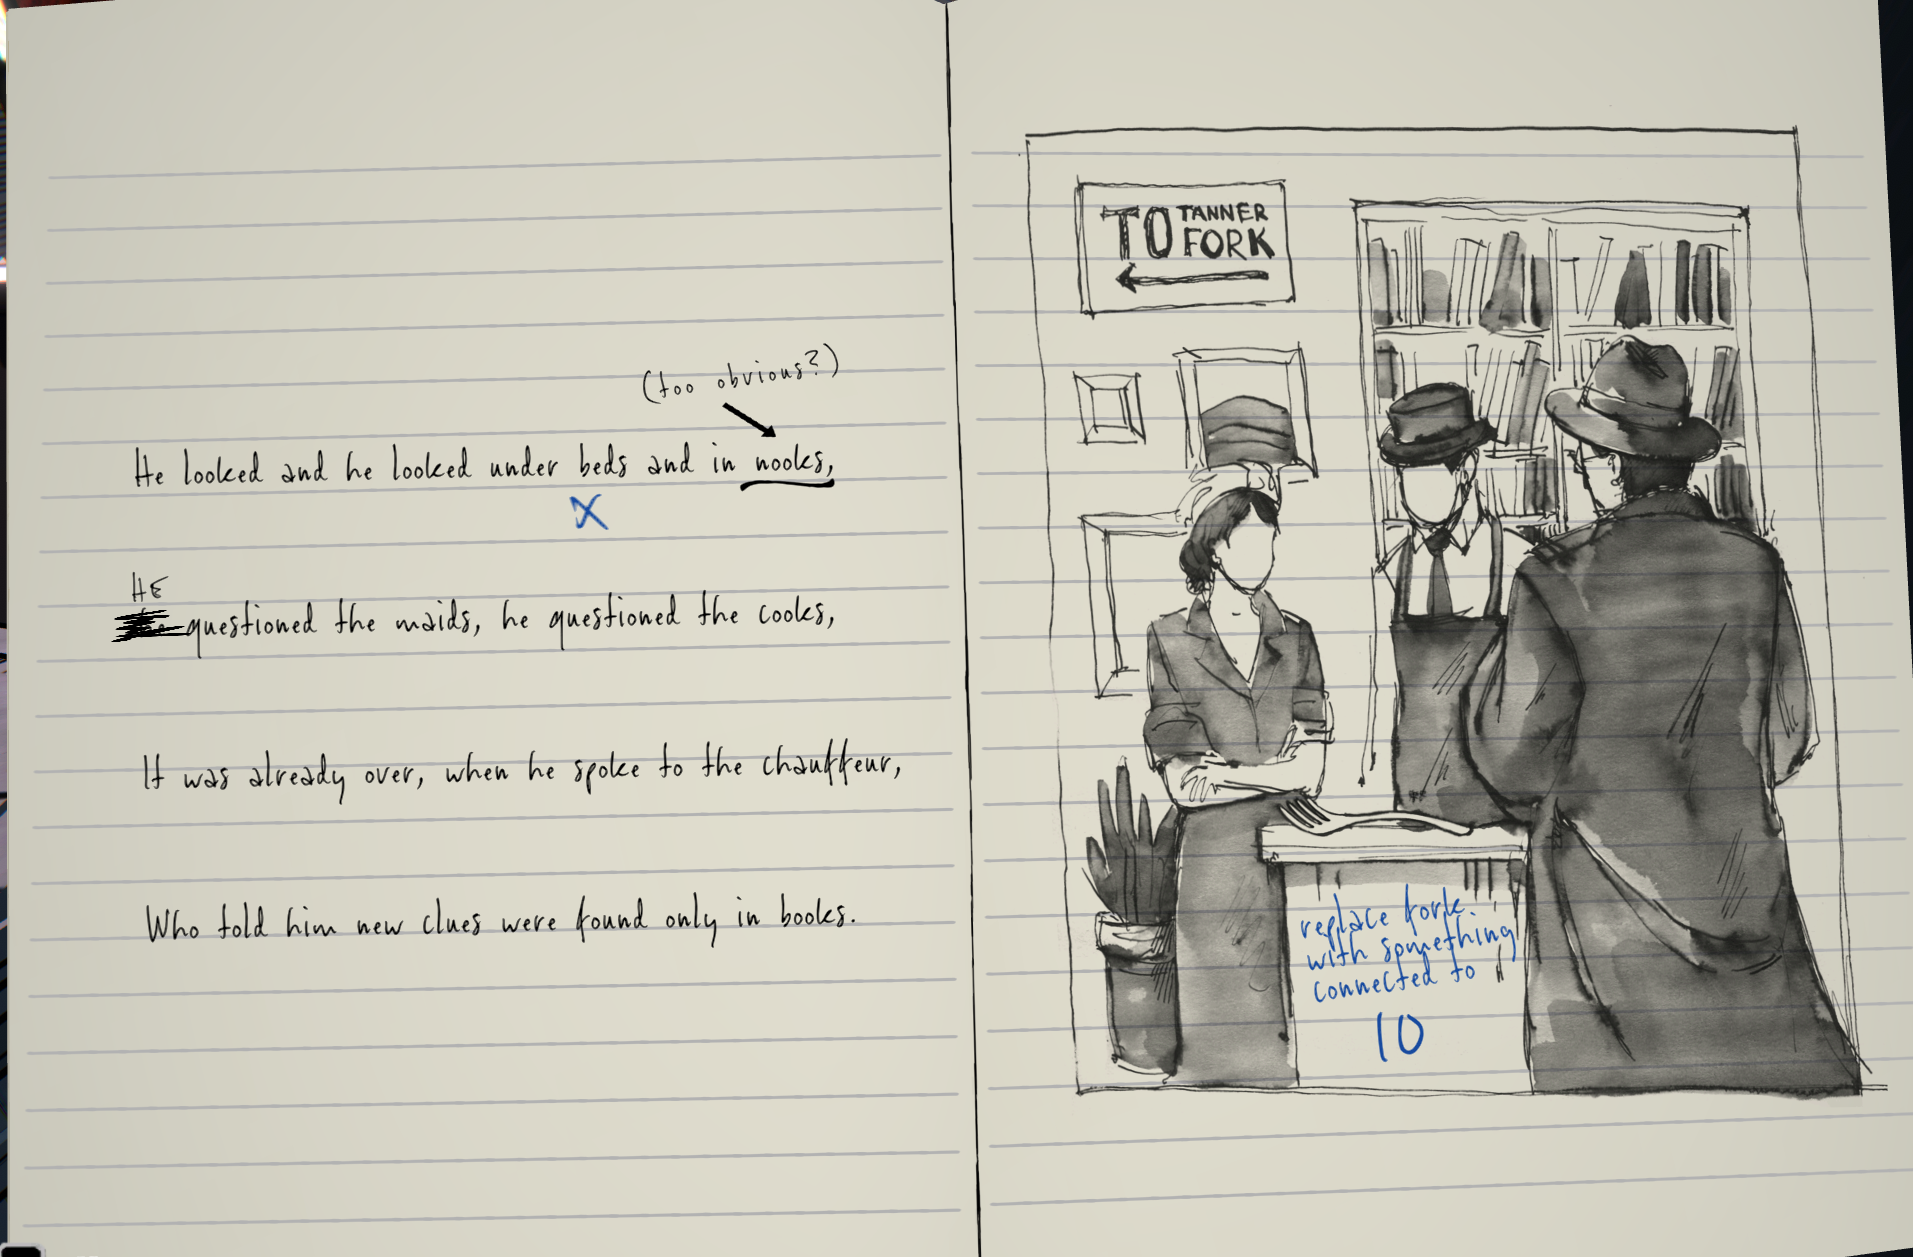 (too obvious?)
He looked and he looked under beds and in nooks,
X
HE
questioned the maids, he questioned the cooks,
It was already over, when he spoke to the chauffeur,
Who told him new clues were found only in books.
TO TANNER FORK
replace fork
with something
connected to
10